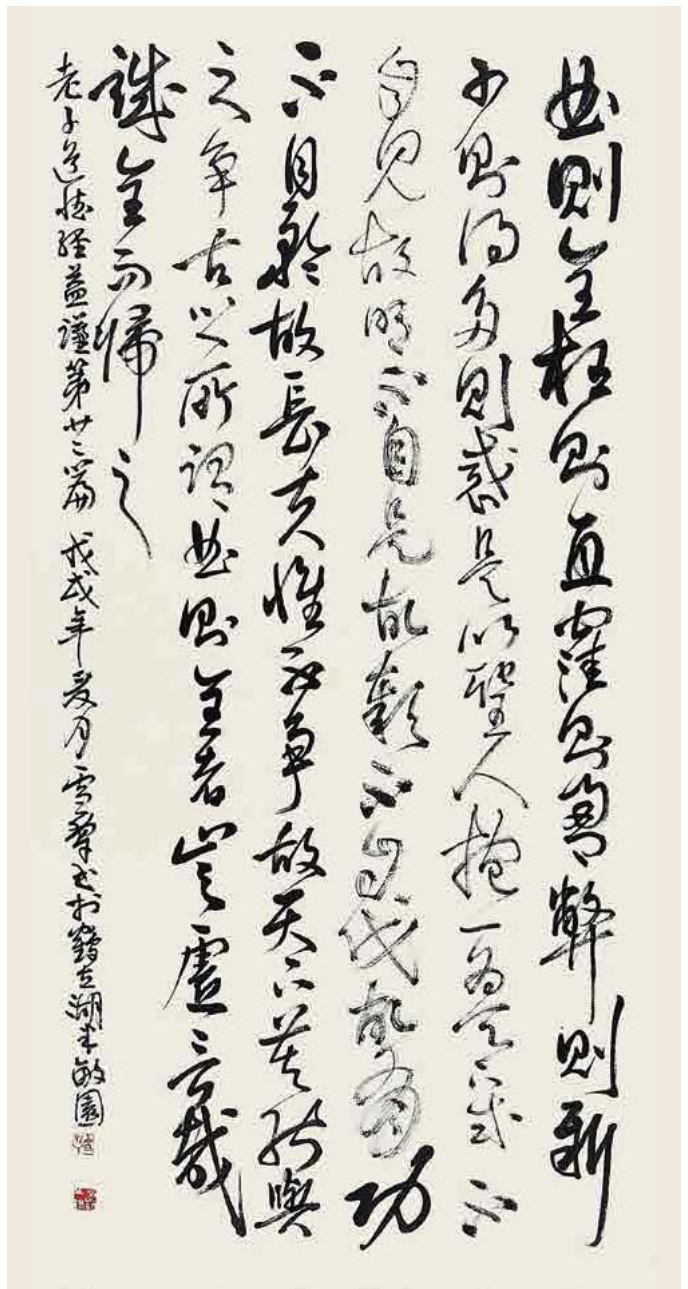 曲則全枉則直窪則盈弊則新
少則得多則惑是以聖人抱一為天下式不
自見故明不自是故彰不自伐故有功
不自矜故長夫惟不爭故天下莫能與
之爭古之所謂曲則全者豈虛言哉
誠全而歸之
老子道德經益謙第廿二篇 戊戌年夏月雪群书於鹤立湖半敏園